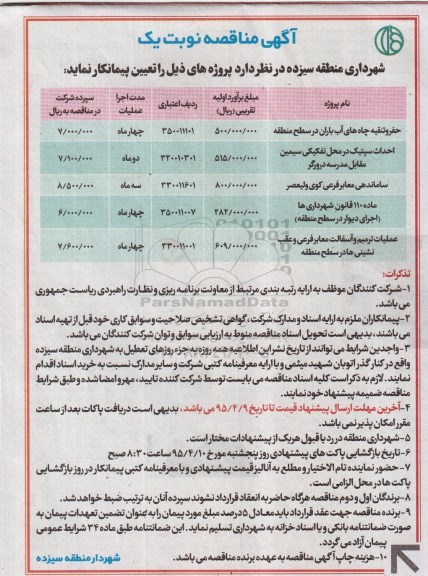 آگهی مناقصه نوبت یک
شهرداری منطقه سیزده در نظر دارد پروژه های ذیل را تعیین پیمانکار نماید:
نام پروژه | مبلغ برآورد اولیه تقریبی (ریال) | ردیف اعتباری | مدت اجرا عملیات | سپرده شرکت در مناقصه به ریال
حفر و تنقیه چاه های آب باران در سطح منطقه | ۵۰۰/۰۰۰/۰۰۰ | ۳۵۰۰۱۱۱۰۱ | چهار ماه | ۷/۰۰۰/۰۰۰
احداث سپتیک در محل تفکیکی سیمین مقابل مدرسه درورگر | ۵۱۵/۰۰۰/۰۰۰ | ۳۲۰۰۱۰۳۰۱ | دو ماه | ۷/۱۰۰/۰۰۰
ساماندهی معابر فرعی کوی ولیعصر | ۸۰۰/۰۰۰/۰۰۰ | ۳۳۰۰۱۱۶۰۱ | سه ماه | ۸/۵۰۰/۰۰۰
ماده ۱۱۰ قانون شهرداری ها (اجرای دیوار در سطح منطقه) | ۲۸۲/۰۰۰/۰۰۰ | ۳۵۰۰۱۱۰۰۷ | چهار ماه | ۶/۰۰۰/۰۰۰
عملیات ترمیم و آسفالت معابر فرعی و عقب نشینی ها در سطح منطقه | ۶۰۹/۰۰۰/۰۰۰ | ۳۳۰۰۱۱۰۰۱ | چهار ماه | ۷/۶۰۰/۰۰۰
ParsNamadData
تذکرات:
۱-شرکت کنندگان موظف به ارایه رتبه بندی مرتبط از معاونت برنامه ریزی و نظارت راهبردی ریاست جمهوری
می باشد.
۲-پیمانکاران ملزم به ارایه اسناد و مدارک شرکت، گواهی تشخیص صلاحیت و سوابق کاری خود قبل از تهیه اسناد
می باشند، بدیهی است تحویل اسناد مناقصه منوط به ارزیابی سوابق و توان شرکت کنندگان می باشد.
۳-واجدین شرایط می توانند از تاریخ نشر این اطلاعیه همه روزه به جز روزهای تعطیل به شهرداری منطقه سیزده
واقع در کنارگذر اتوبان شهید میثمی و با ارایه معرفینامه کتبی شرکت و سایر مدارک نسبت به خرید اسناد اقدام
نمایند. لازم به ذکر است کلیه اسناد مناقصه می بایست توسط شرکت کننده تایید، مهر و امضا شده و طبق شرایط
مناقصه ضمیمه پیشنهاد خود نمایند
۴-آخرین مهلت ارسال پیشنهاد قیمت تا تاریخ ۹۵/۴/۹ می باشد، بدیهی است دریافت پاکات بعد از ساعت
مقرر امکان پذیر نمی باشد.
۵-شهرداری منطقه در رد یا قبول هر یک از پیشنهادات مختار است.
۶-تاریخ بازگشایی پاکت های پیشنهادی روز پنجشنبه مورخ ۹۵/۴/۱۰ ساعت ۸:۳۰ صبح
۷-حضور نماینده تام الاختیار و مطلع به آنالیز قیمت پیشنهادی و با معرفینامه کتبی پیمانکار در روز بازگشایی
پاکت ها در محل الزامی است.
۸-برندگان اول و دوم مناقصه هرگاه حاضر به انعقاد قرارداد نشوند سپرده آنان به ترتیب ضبط خواهد شد.
۹-برنده مناقصه جهت عقد قرارداد باید معادل ۵ درصد مبلغ مورد پیمان را به عنوان تضمین تعهدات پیمان به
صورت ضمانتنامه بانکی و یا اسناد خزانه به شهرداری تسلیم نماید. این ضمانتنامه طبق ماده ۳۴ شرایط عمومی
پیمان آزاد می گردد.
۱۰-هزینه چاپ آگهی مناقصه به عهده برنده مناقصه می باشد.
شهردار منطقه سیزده